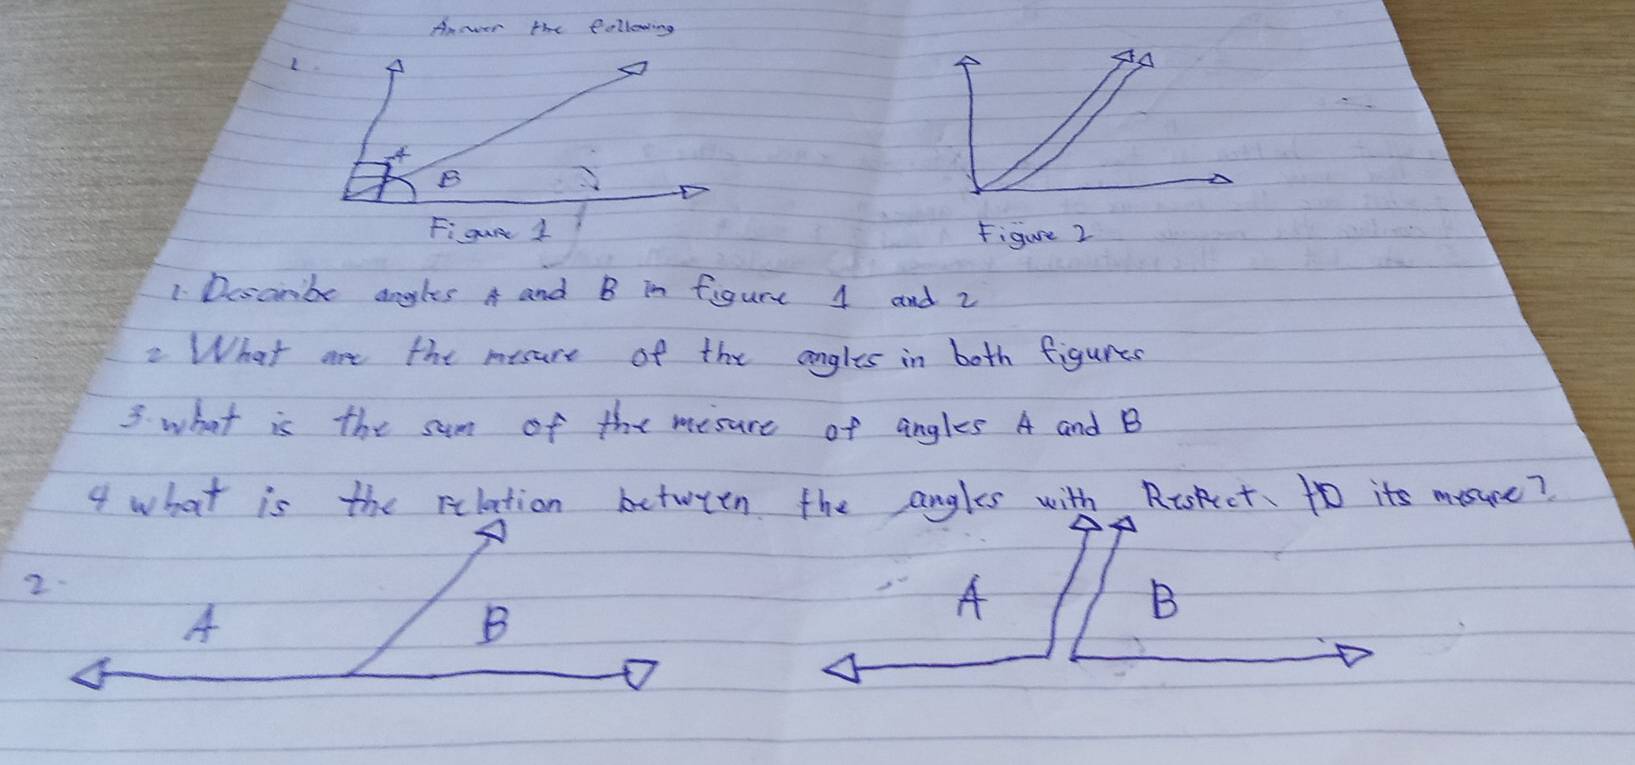 Answer the following
1.
A
B
Figure 1
Figure 2
1. Describe angles A and B in figure 1 and 2
2 What are the mesure of the angles in both figures
3. what is the sum of the mesure of angles A and B
4 what is the relation between the angles with Respect to its mesure?
2.
A B A B